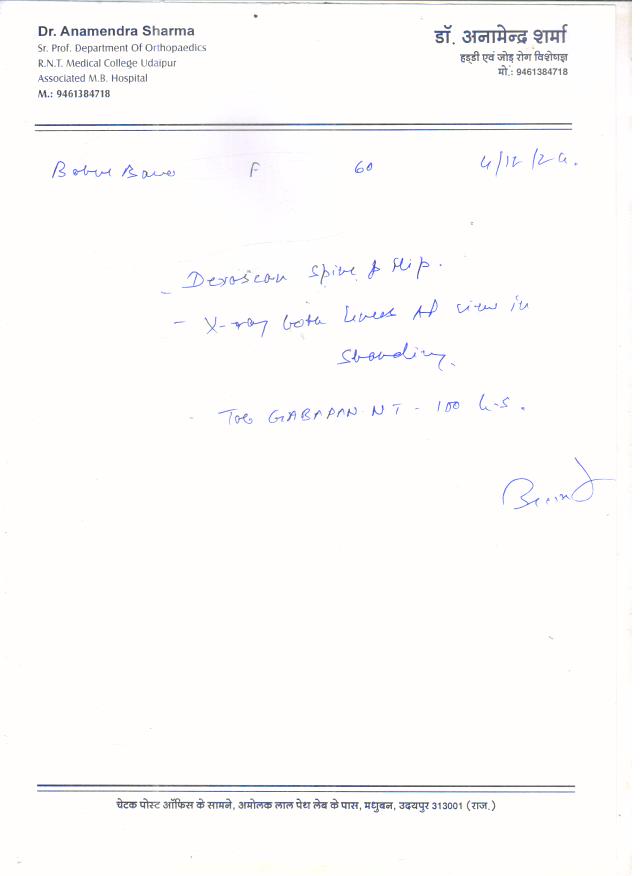 Dr. Anamendra Sharma
Sr. Prof. Department Of Orthopaedics
R.N.T. Medical College Udaipur
Associated M.B. Hospital
M.: 9461384718
डॉ. अनामेन्द्र शर्मा
हड्डी एवं जोड़ रोग विशेषज्ञ
मो.: 9461384718
F 60 4/12/24.
- Dexascan Spine & Hip.
- X-ray both knees AP view in
standing.
- Tab GABAPAN NT - 100 h.s.
चेटक पोस्ट ऑफिस के सामने, अमोलक लाल पेथ लेब के पास, मधुबन, उदयपुर 313001 (राज.)